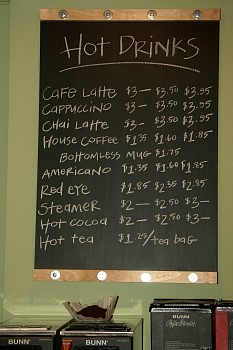 Hot Drinks
Cafe Latte $3— $3.50 $3.95
Cappuccino $3— $3.50 $3.95
Chai Latte $3— $3.50 $3.95
House Coffee $1.35 $1.60 $1.85
Bottomless Mug $1.75
Americano $1.35 $1.60 $1.85
Red eye $1.85 $2.35 $2.85
Steamer $2— $2.50 $3—
Hot cocoa $2— $2.50 $3—
Hot tea $1.25/tea bag
BUNN
BUNN
BUNN